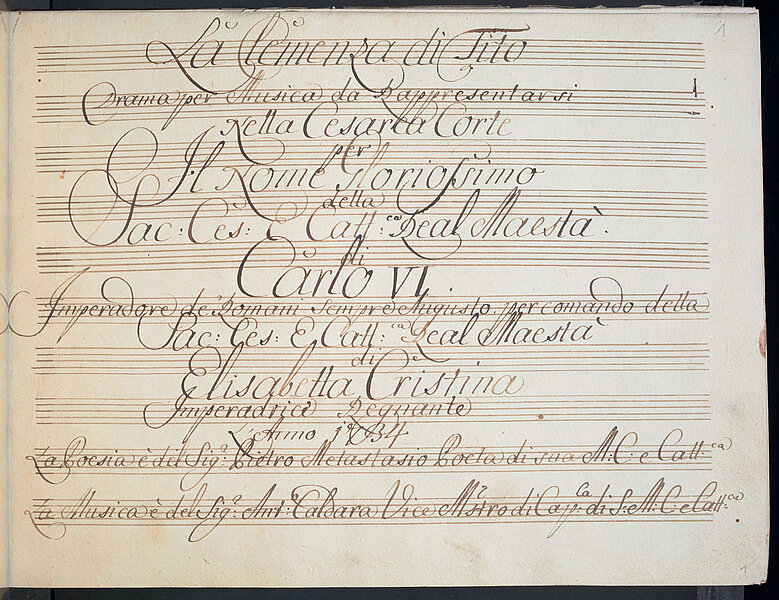 1
La Clemenza di Tito
Drama per Musica da Rappresentarsi
Nella Cesarea Corte
per
Il Nome Gloriosissimo
della
Sac: Ces: E Catt:ca Real Maestà.
di
Carlo VI.
Imperadore de' Romani sempre Augusto per comando della
Sac: Ces: E Catt:ca Real Maestà
di
Elisabetta Cristina
Imperadrice Regnante
L'Anno 1734
La Poesia è del Sig:e Pietro Metastasio Poeta di sua M: C: e Catt:ca
La Musica è del Sig:e Ant:o Caldara Vice Mstro di Cap:la di S: M: C: e Catt:ca
1